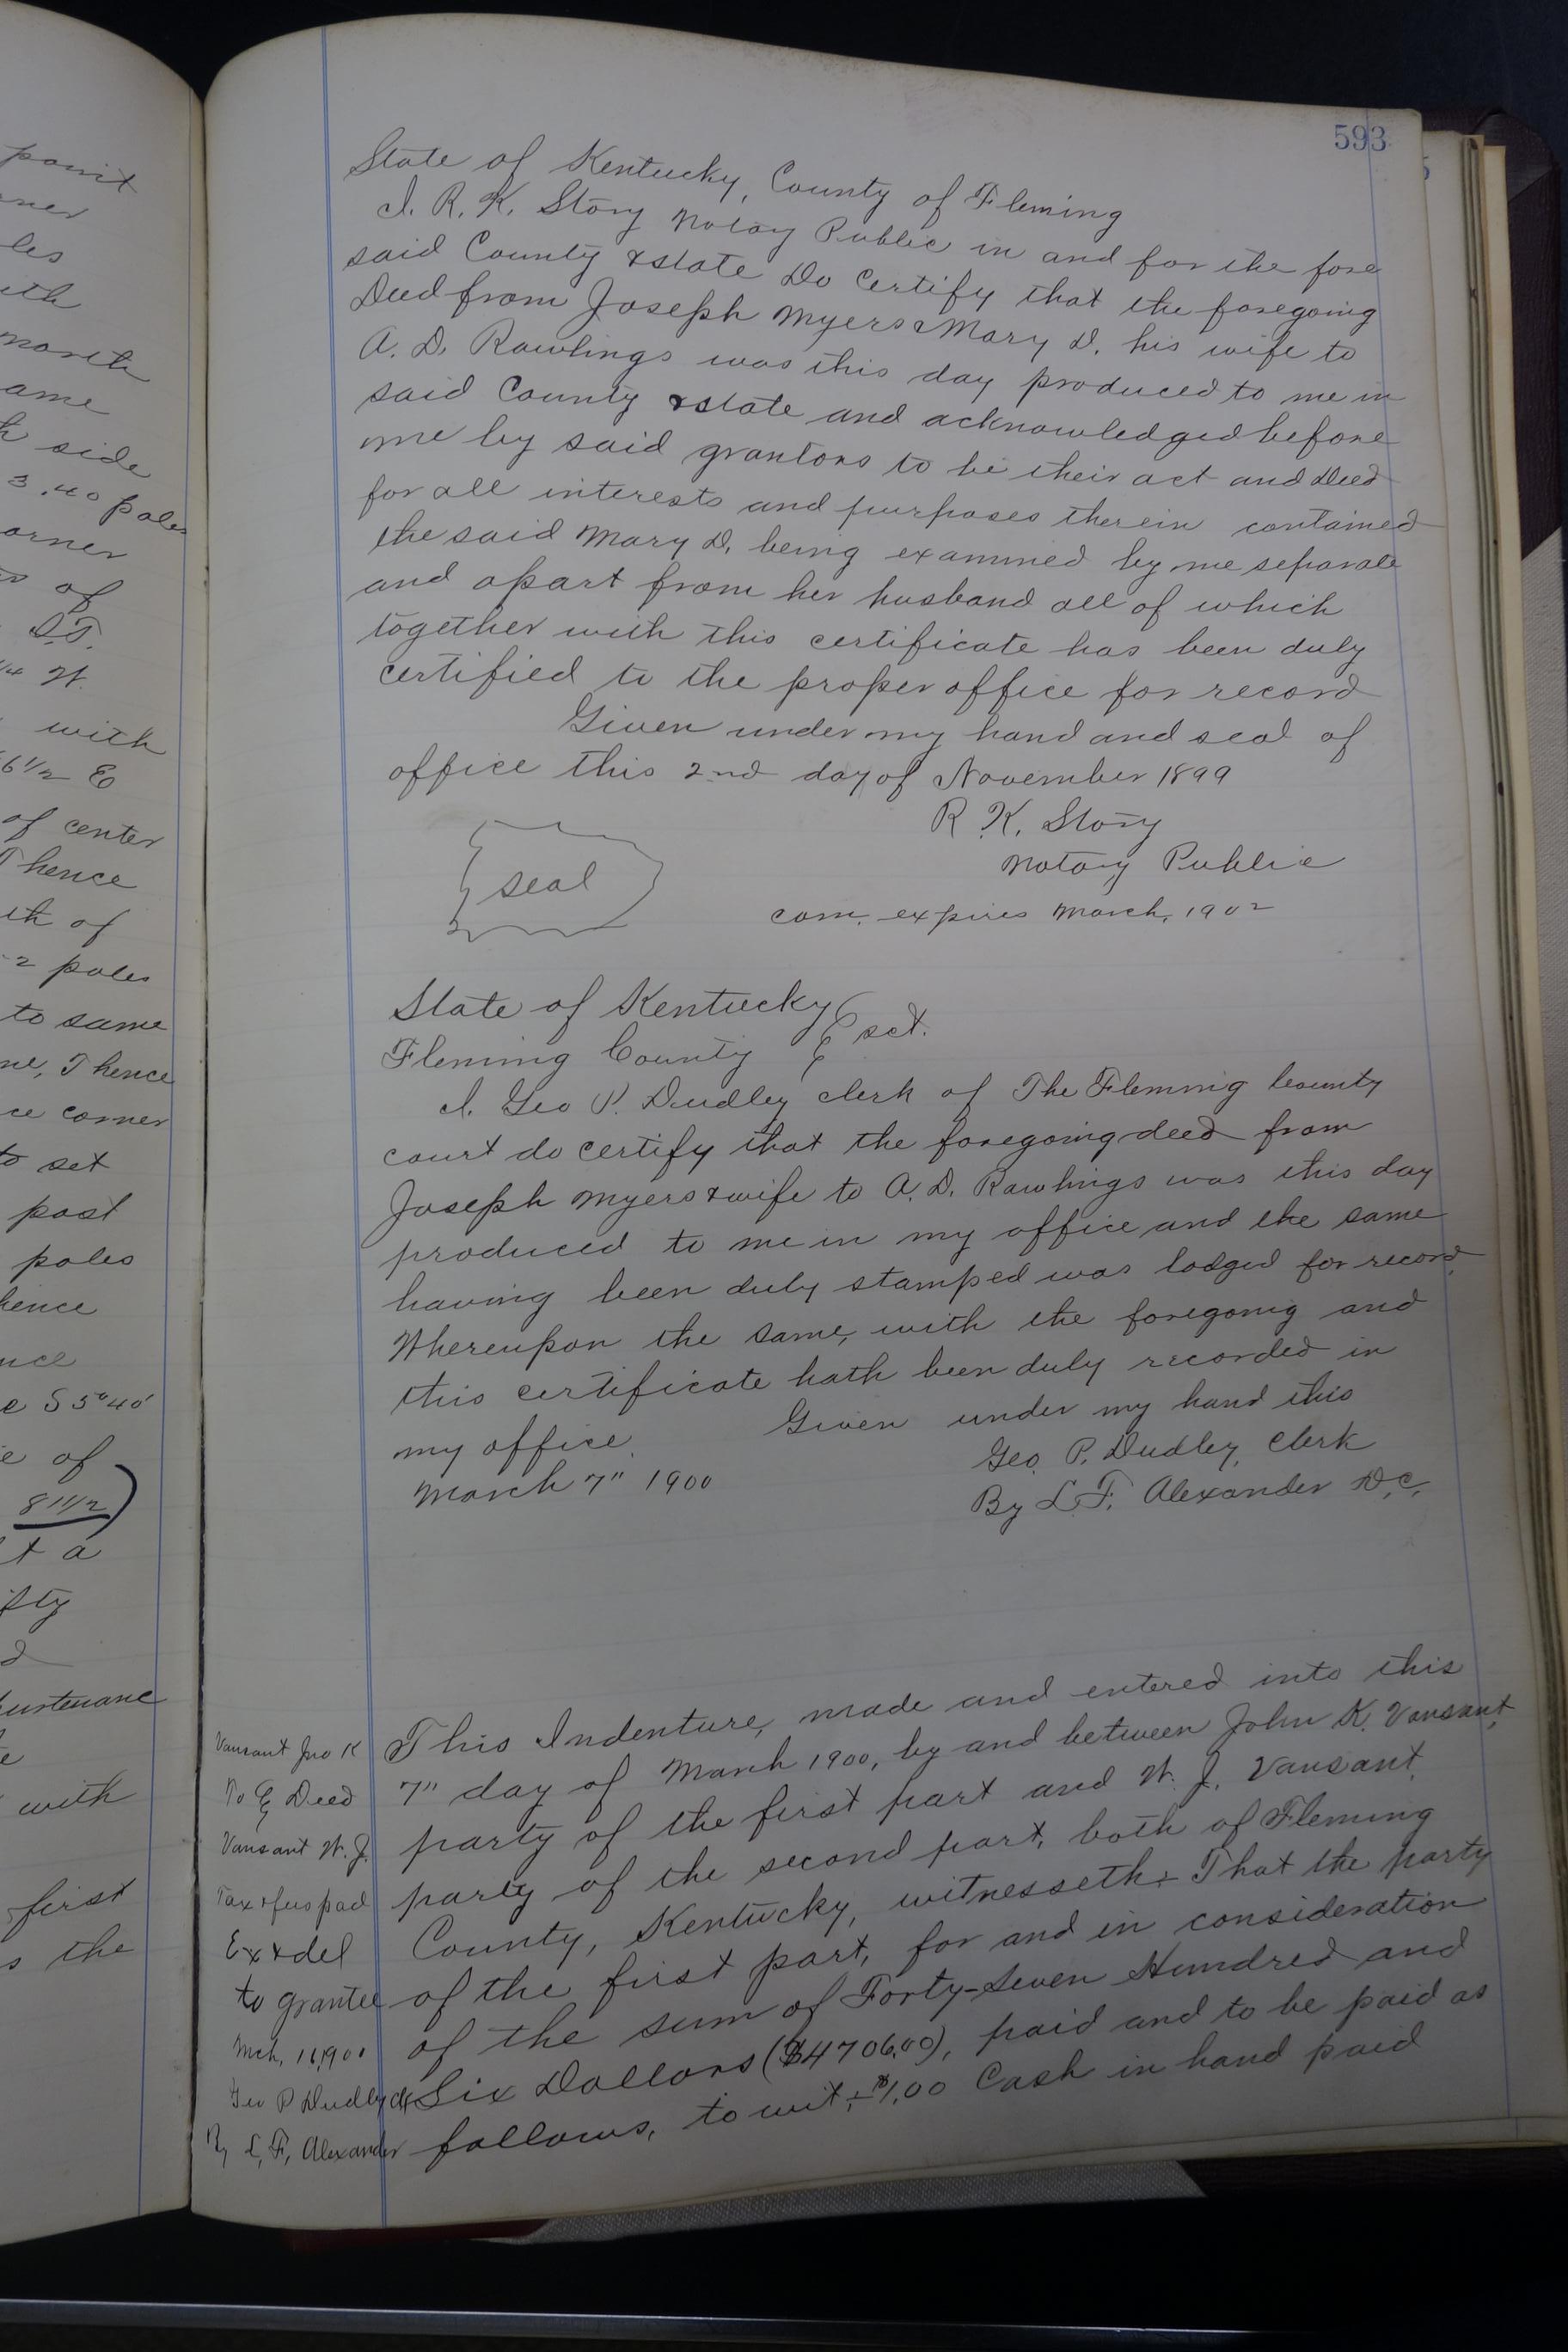 point
ner
les
ith
north
ame
h side
3.40 poles
orner
of
S.T.
1/4 W.
with
6 1/2 E
of center
Thence
ith of
2 poles
to same
ne, Thence
ce corner
to set
post
poles
hence
nce
e S 5°40'
e of
8 11/2)
t a
sty
d
urtenance
e
with
first
s the
593
State of Kentucky, County of Fleming
I. R. K. Story Notary Public in and for the fore
said County & state Do Certify that the foregoing
Deed from Joseph Myers & Mary D. his wife to
A. D. Rawlings was this day produced to me in
said County & state and acknowledged before
me by said grantors to be their act and Deed
for all interests and purposes therein contained
the said Mary D. being examined by me separate
and apart from her husband all of which
together with this certificate has been duly
certified to the proper office for record
Given under my hand and seal of
office this 2nd day of November 1899
R. K. Story
Notary Public
seal
com. expires March, 1902
State of Kentucky
Fleming County } sct.
I. Geo P. Dudley clerk of The Fleming County
court do certify that the foregoing deed from
Joseph Myers & wife to A. D. Rawlings was this day
produced to me in my office, and the same
having been duly stamped was lodged for record
Whereupon the same, with the foregoing and
this certificate hath been duly recorded in
my office. Given under my hand this
March 7" 1900
Geo. P. Dudley, Clerk
By L. F. Alexander D.C.
Vansant Jno K
To } Deed
Vansant W. J.
Tax & fees paid
Ex & del
to grantee
Mch, 16, 1900
Geo P Dudley clk
By L. F. Alexander
This Indenture, made and entered into this
7" day of March 1900, by and between John K. Vansant,
party of the first part and W. J. Vansant,
party of the second part, both of Fleming
County, Kentucky, witnesseth:- That the party
of the first part, for and in consideration
of the sum of Forty-Seven Hundred and
Six Dollars ($4706.00), paid and to be paid as
follows, to wit:- $1.00 Cash in hand paid